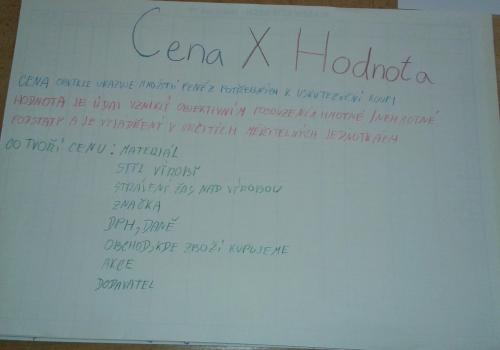 Cena X Hodnota
CENA OBVYKLE UKAZUJE MNOŽSTVÍ PENĚZ POTŘEBNÝCH K USKUTEČNĚNÍ KOUPI
HODNOTA JE ÚDAJ VZNIKLÝ OBJEKTIVNÍM POSOUZENÍM HMOTNÉ / NEHMOTNÉ
PODSTATY A JE VYJÁDŘENÍ V URČITÝCH MĚŘITELNÝCH JEDNOTKÁCH
CO TVOŘÍ CENU: MATERIÁL
STYL VÝROBY
STRÁVENÍ ČAS NAD VÝROBOU
ZNAČKA
DPH, DANĚ
OBCHOD, KDE ZBOŽÍ KUPUJEME
AKCE
DODAVATEL